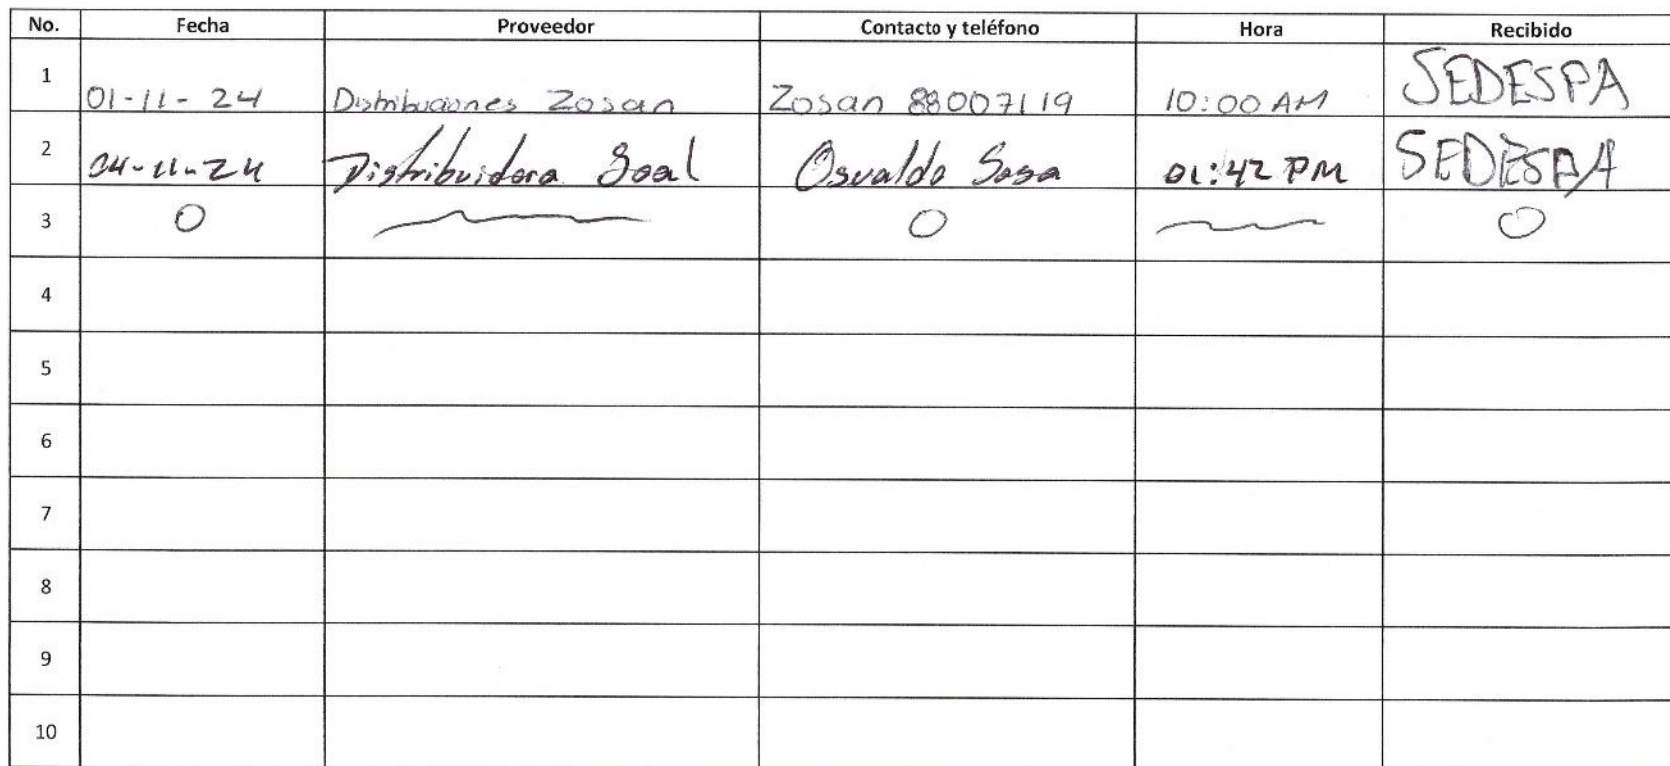 No. Fecha Proveedor Contacto y teléfono Hora Recibido
1 01-11-24 Distribuciones Zosan Zosan 88007119 10:00 AM SEDESPA
2 04-11-24 Distribuidora Soal Osvaldo Sosa 01:42 PM SEDESPA
3
4
5
6
7
8
9
10